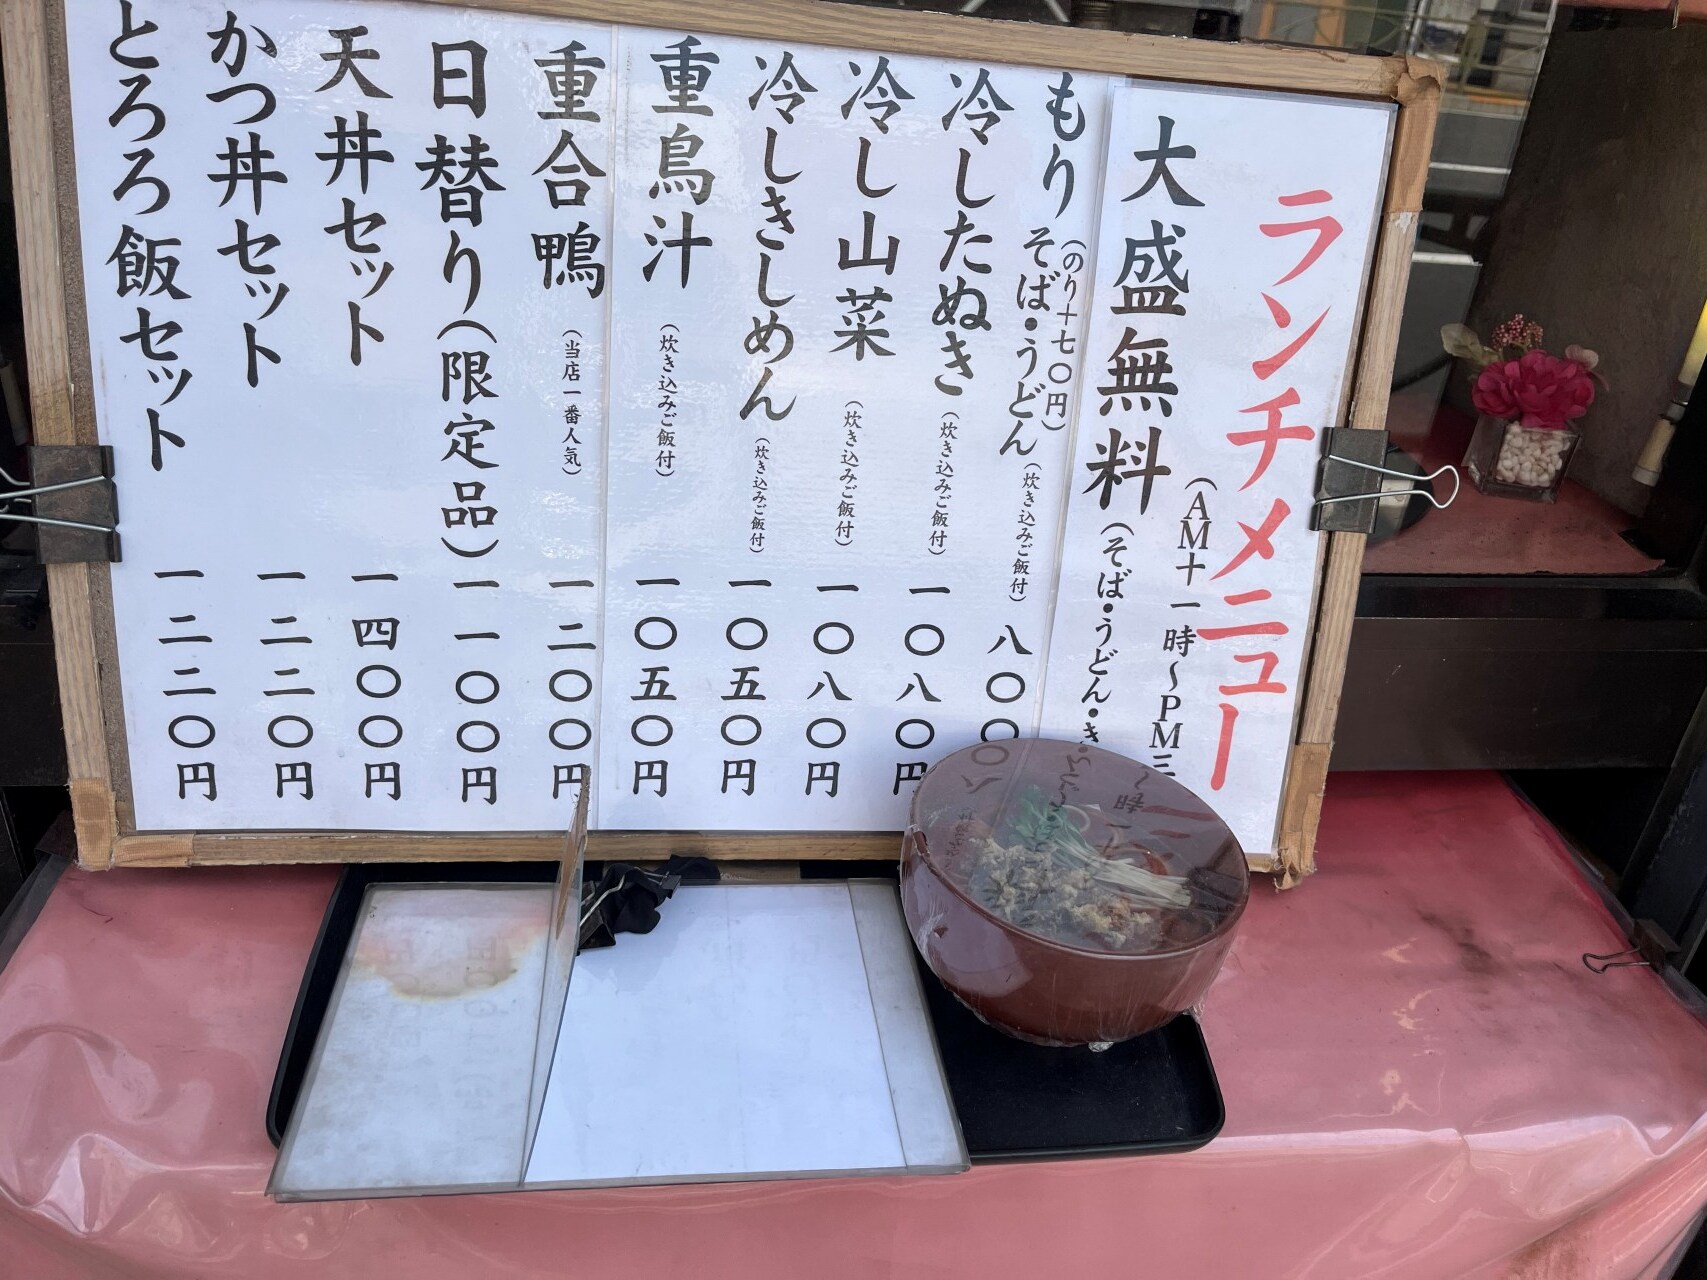 ランチメニュー
(AM十一時～PM三
大盛無料(そば・うどん・き
もりそば・うどん(炊き込みご飯付)八〇〇
(のり+七〇円)
冷したぬき(炊き込みご飯付)一〇八〇円
冷し山菜(炊き込みご飯付)一〇八〇円
冷しきしめん(炊き込みご飯付)一〇五〇円
重鳥汁(炊き込みご飯付)一〇五〇円
重合鴨(当店一番人気)一二〇〇円
日替り(限定品)一一〇〇円
天丼セット一四〇〇円
かつ丼セット一二二〇円
とろろ飯セット一二二〇円